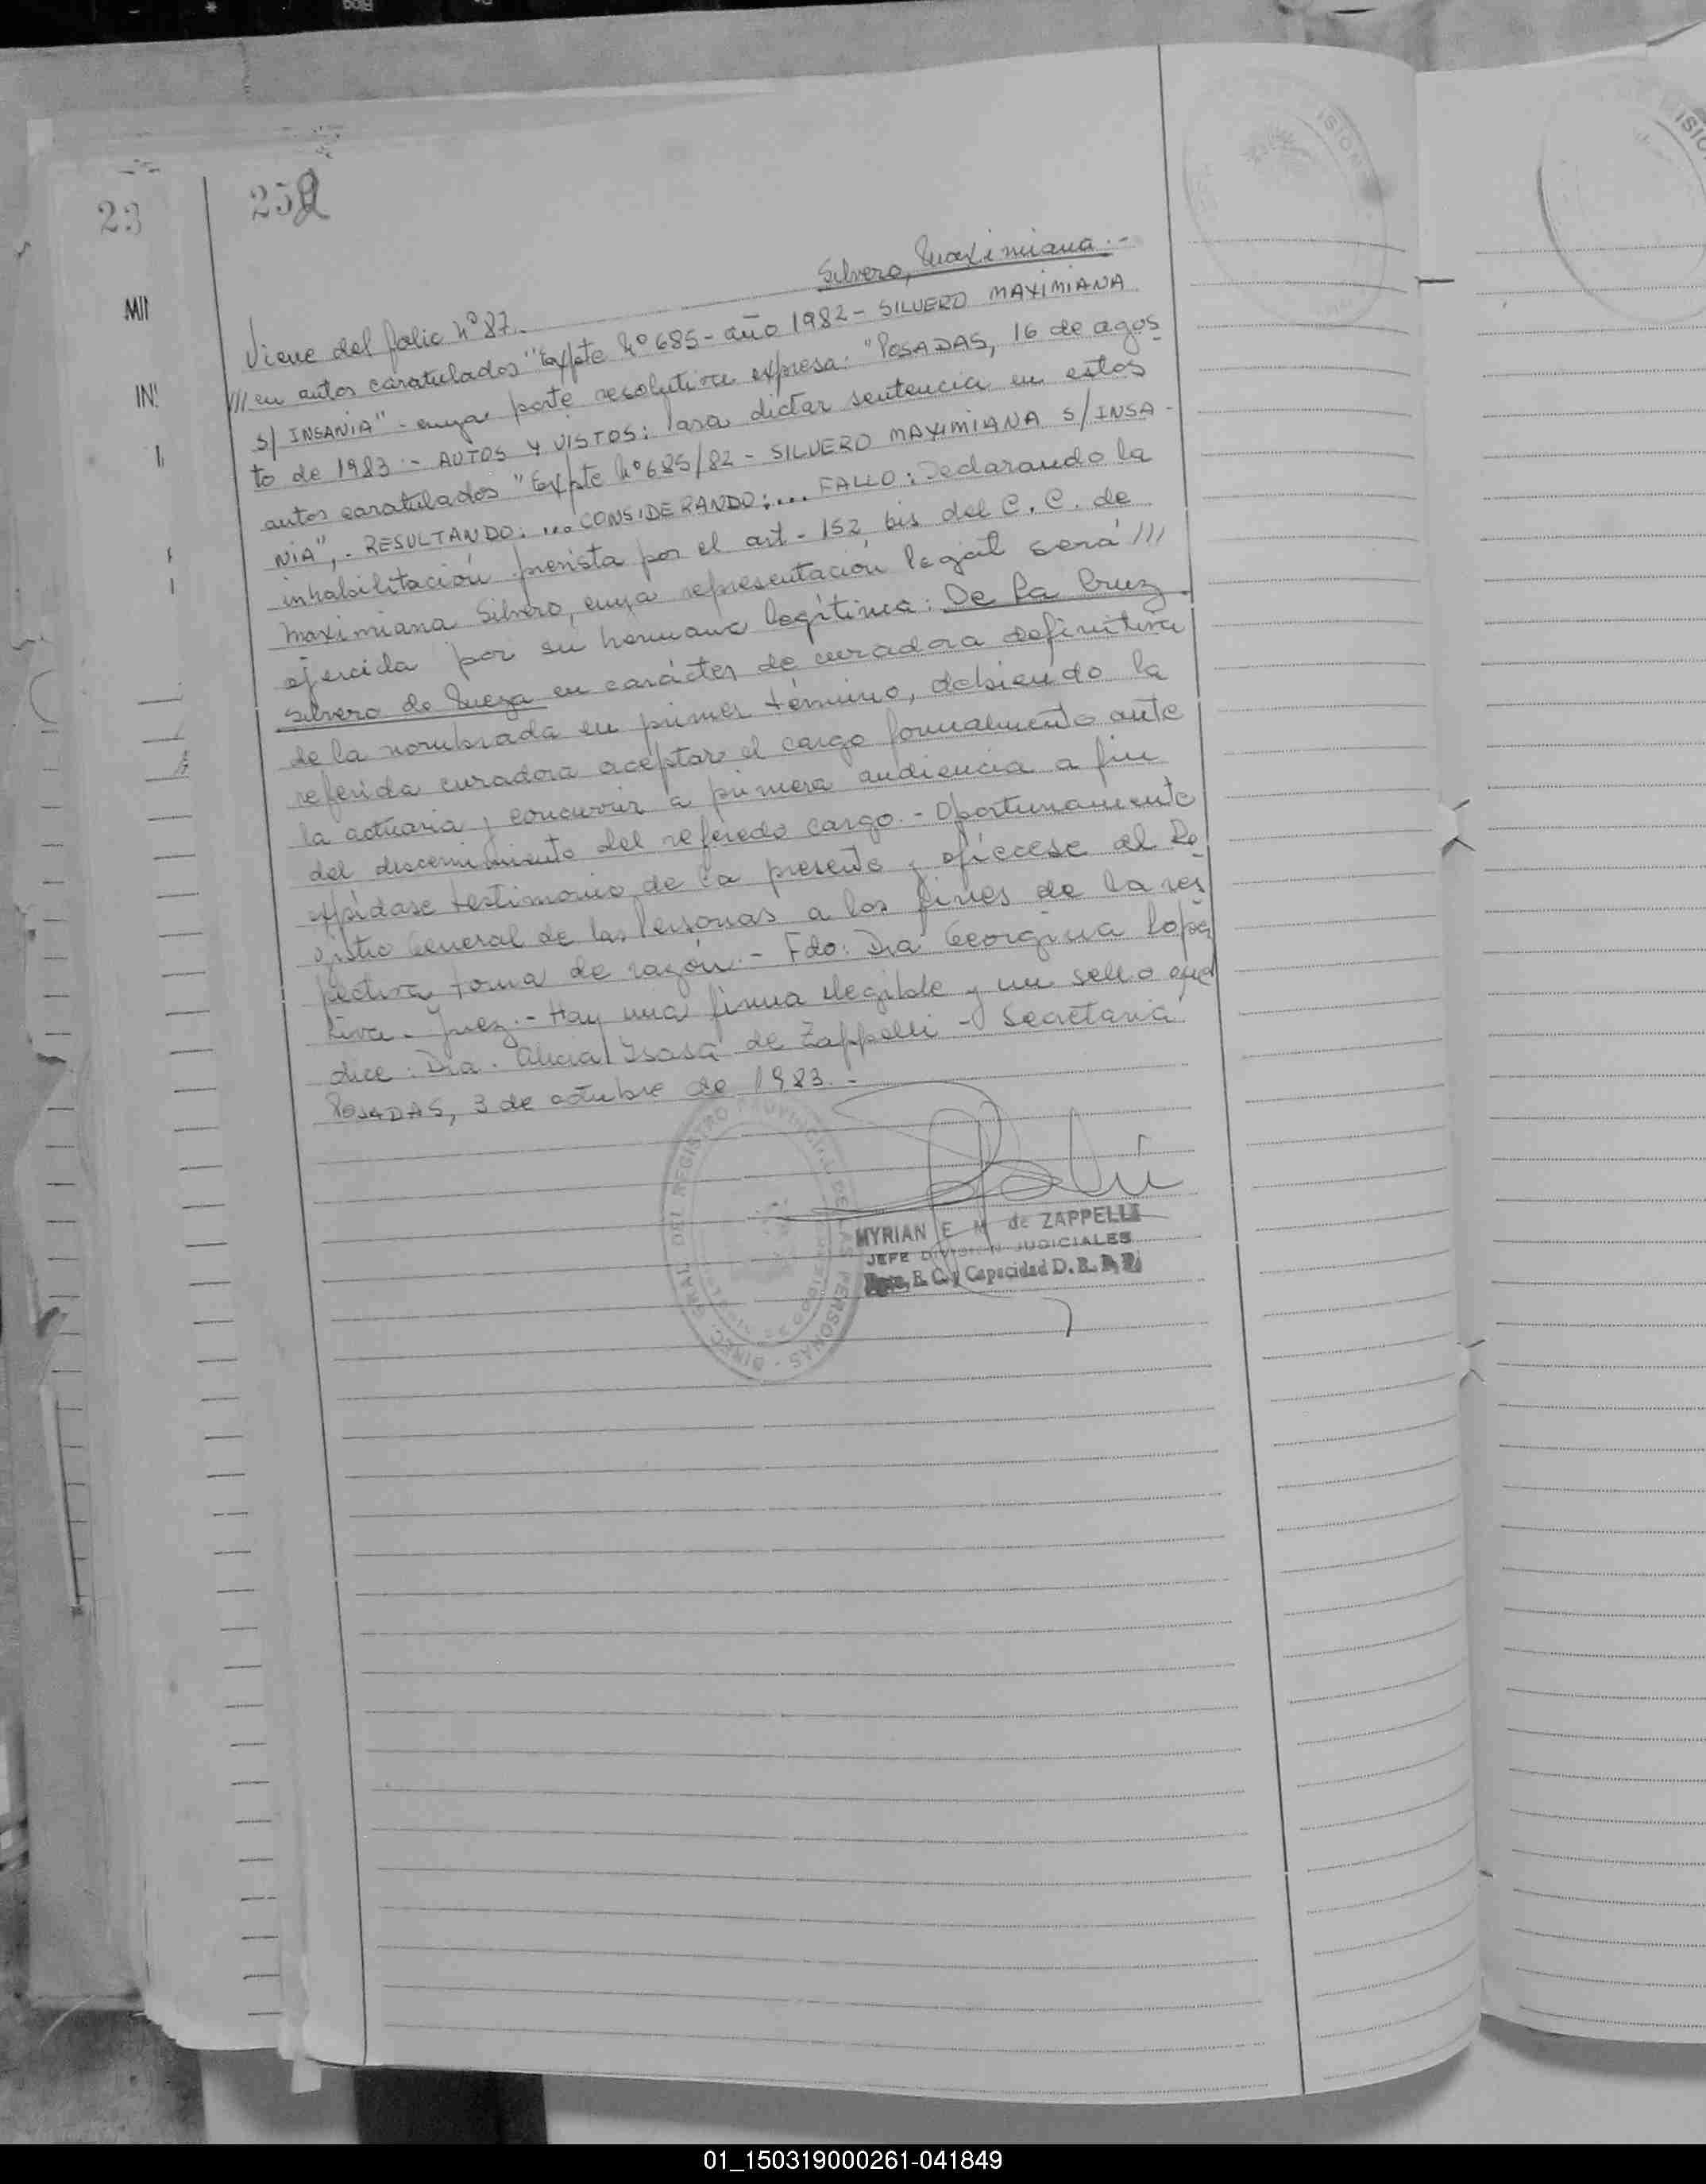 23
252
MII
IN!
Silvero, Maximiana.-
Viene del folio Nº 87.
/// en autos caratulados "Expte Nº 685 - año 1982 - SILVERO MAXIMIANA
S/ INSANIA" - cuya parte resolutiva expresa: "POSADAS, 16 de agos
to de 1983.- AUTOS Y VISTOS: Para dictar sentencia en estos
autos caratulados "Expte Nº 685/82 - SILVERO MAXIMIANA S/INSA-
NIA",- RESULTANDO: ... CONSIDERANDO: ... FALLO: Declarando la
inhabilitación prevista por el art - 152 bis del C.C. de
Maximiana Silvero, cuya representación legal será ///
ejercida por su hermana legítima: De La Cruz
Silvero de en carácter de curadora definitiva
de la nombrada en primer término, debiendo la
referida curadora aceptar el cargo formalmente ante
la actuaria y concurrir a primera audiencia a fin
del discernimiento del referido cargo.- Oportunamente
expídase testimonio de la presente y ofíciese al Re
gistro General de las Personas a los fines de la res
pectiva toma de razón.- Fdo: Dra Georgina Lopez
Leiva - Juez.- Hay una firma ilegible y un sello que
dice: Dra. Alicia Isasa de Zappelli - Secretaria
POSADAS, 3 de octubre de 1983.-
DIREC. GRAL. DEL REGISTRO PROVINCIAL DE LAS PERSONAS
MYRIAN E. M. de ZAPPELLI
JEFE DIVISION JUDICIALES
Dpto. E. C. y Capacidad D. R. P. P.
01_150319000261-041849